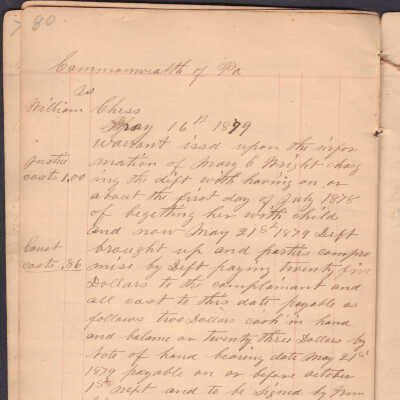 80
Commonwealth of Pa
vs
William Chess
May 16th 1879
Warrant issd upon the infor
Justice mation of Mary C Wright charg
costs 1.00 ing the dift with having on or
about the first day of July 1878
of begetting her with child
and now May 21st 1879 Dift
Const brought up and parties compro
costs .86 mise by Dift paying twenty five
Dollars to the complainant and
all cost to this date payable as
follows two Dollars cash in hand
and balanc on twenty three Dollars by
Note of hand bearing date May 21st
1879 payable on or before october
1st nept and to be signed by